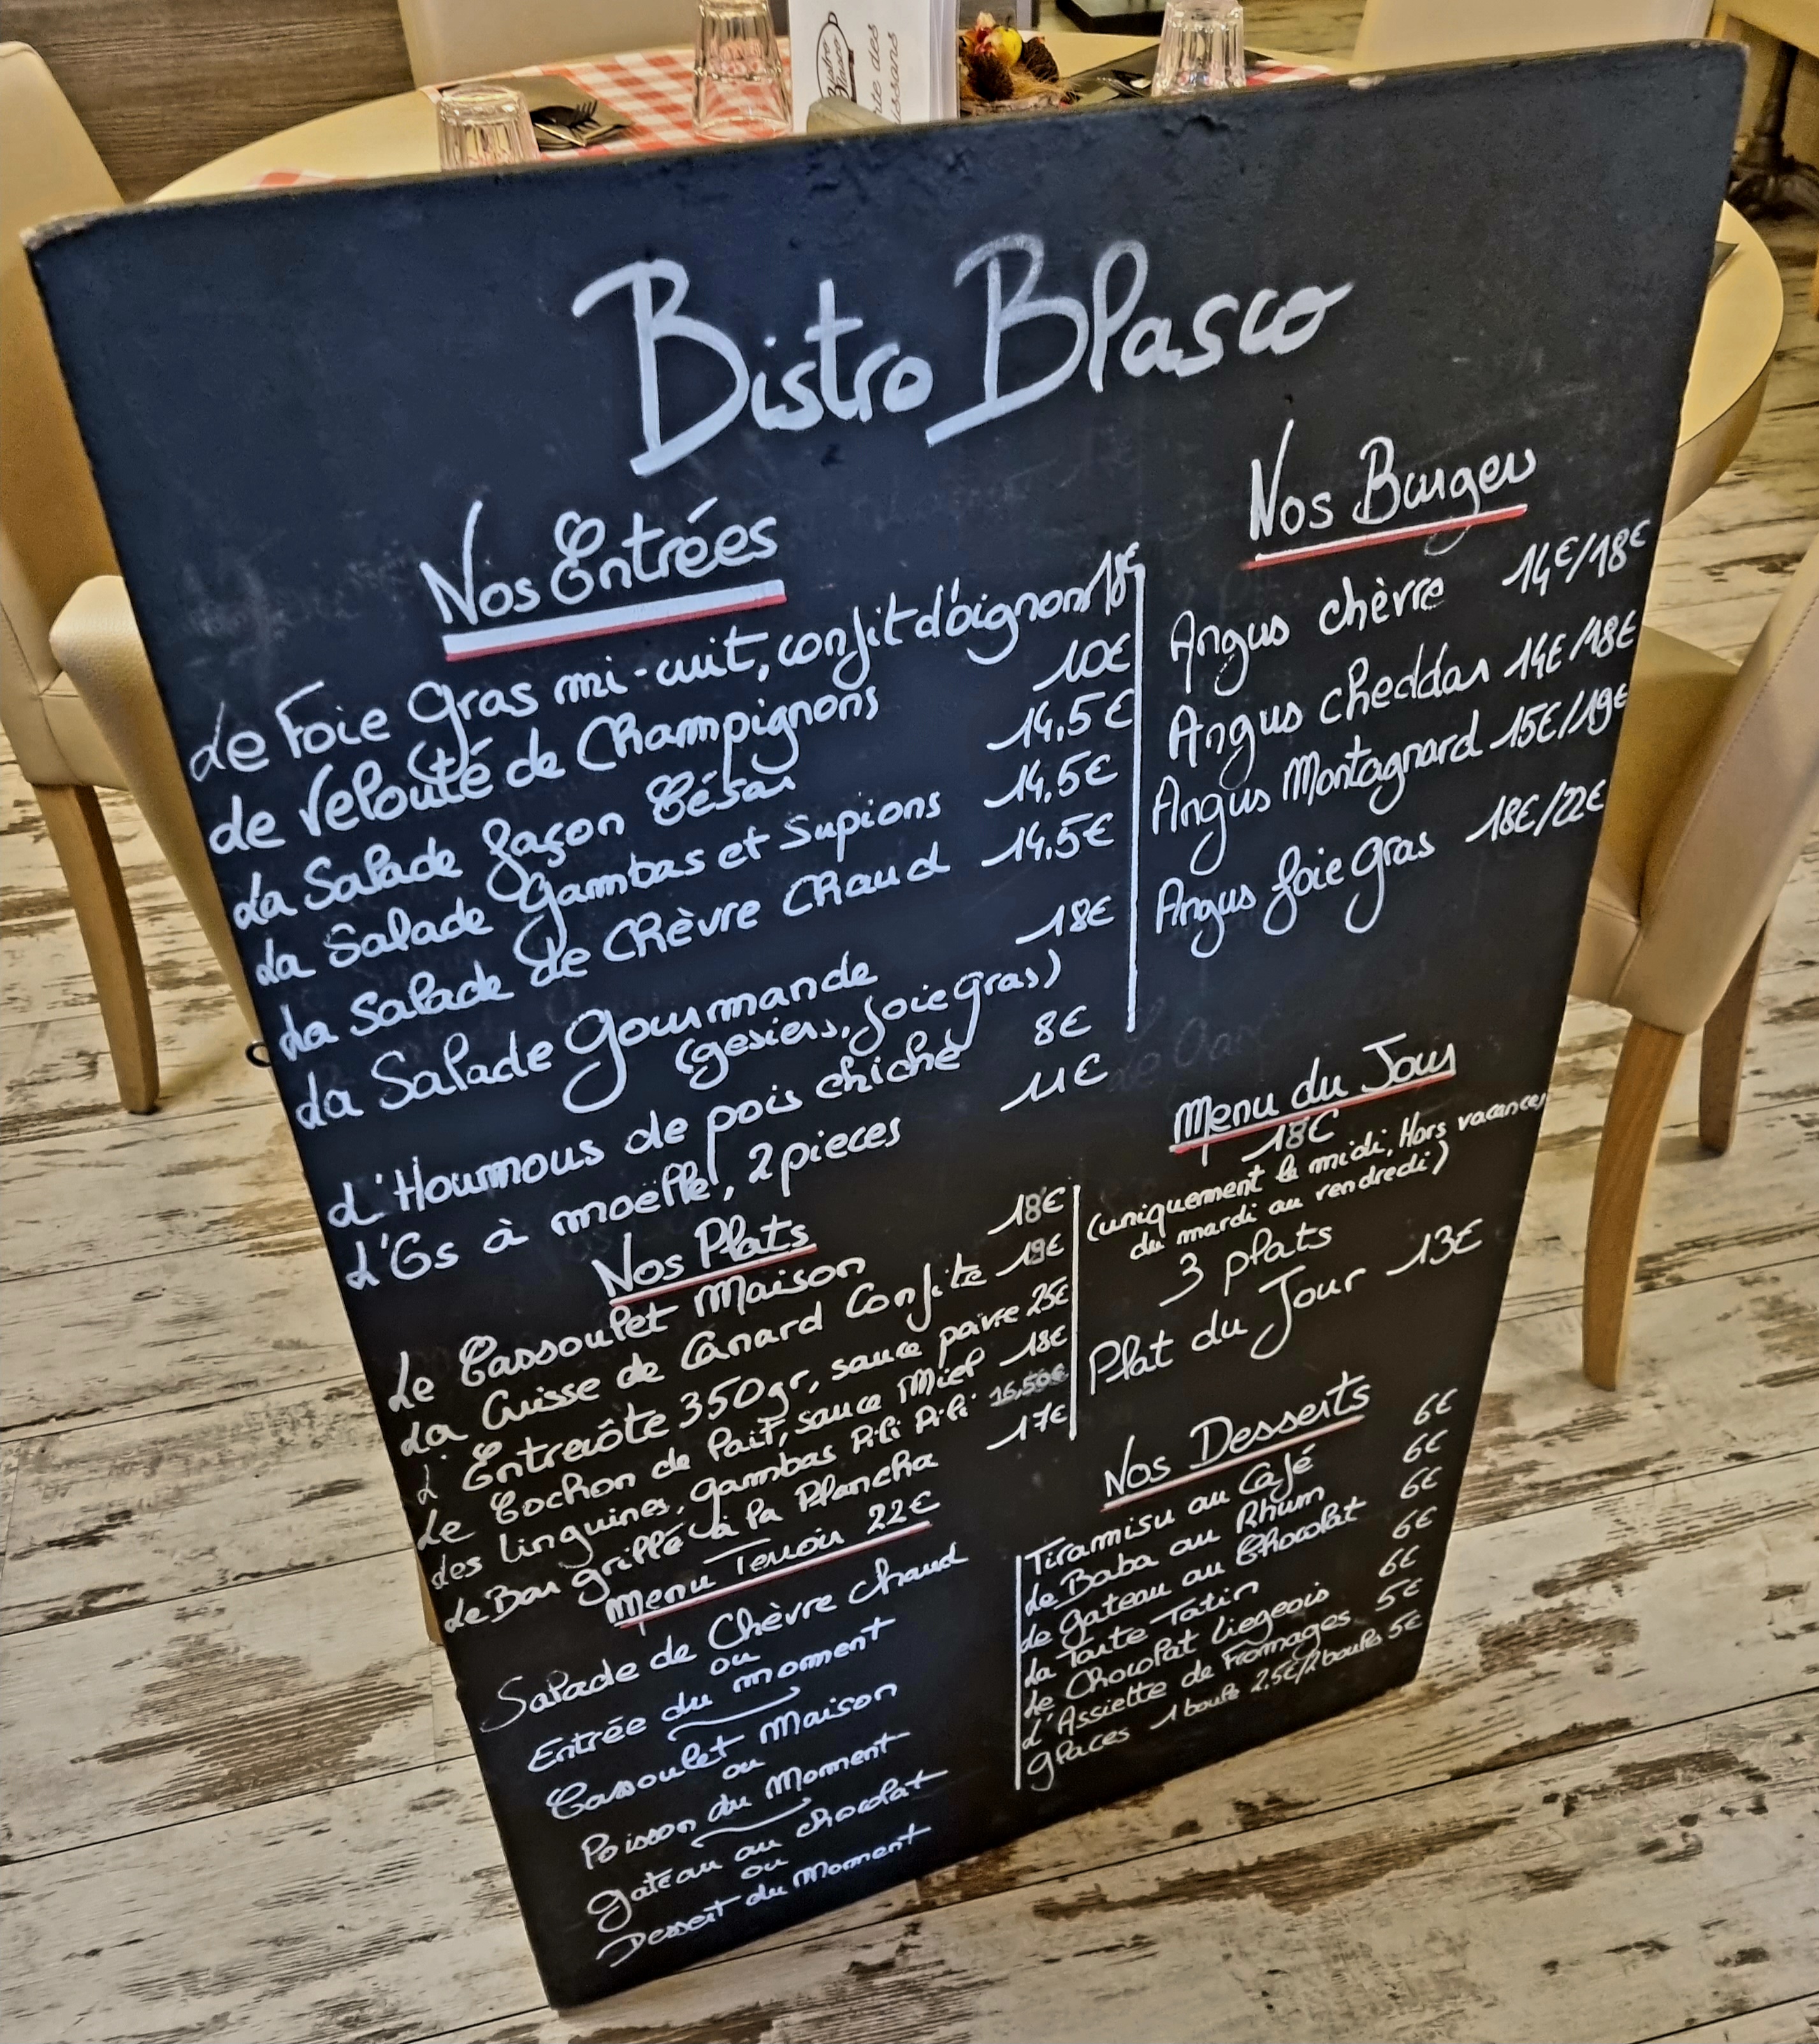 Bistro Blasco
Nos Entrées
Le Foie Gras mi-cuit, confit d'oignons 18€
Le Velouté de Champignons 10€
La Salade façon César 14,5€
La Salade Gambas et Supions 14,5€
La Salade de Chèvre Chaud 14,5€
La Salade Gourmande 18€
(gesiers, foie gras)
L'Houmous de pois chiche 8€
L'Os à moelle, 2 pieces 11€
Nos Plats
Le Cassoulet Maison 18€
La Cuisse de Canard Confite 19€
L'Entrecôte 350gr, sauce poivre 25€
Le Cochon de lait, sauce Miel 18€
Les linguines, gambas Pili Pili 16,50€
Le Bar grillé à la Plancha 17€
Menu Terroir 22€
Salade de Chèvre chaud
ou
Entrée du moment
Cassoulet Maison
ou
Poisson du Moment
Gateau au chocolat
ou
Dessert du Moment
Nos Burger
Angus chèvre 14€/18€
Angus cheddar 14€/18€
Angus Montagnard 15€/19€
Angus foie gras 18€/22€
Menu du Jour
18€
(uniquement le midi, Hors vacances,
du mardi au vendredi)
3 plats
Plat du Jour 13€
Nos Desserts
Tiramisu au Café 6€
Le Baba au Rhum 6€
Le Gateau au Chocolat 6€
La Tarte Tatin 6€
Le Chocolat Liegeois 6€
L'Assiette de Fromages 5€
Glaces 1 boule 2,5€/2 boules 5€